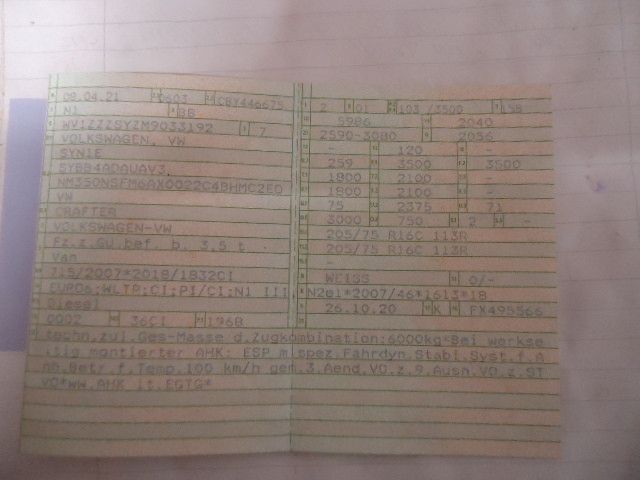 08.04.21 0603 CBY446675
N1 BB
WV1ZZZSYZM9033192 7
VOLKSWAGEN, VW
SYN1E
SYBB4ADAUAV3
NM350NSFM6AX0022C4BHMC2EO
VW
CRAFTER
VOLKSWAGEN-VW
Fz.z.Gü.bef. b. 3,5 t
Van
715/2007*2018/1832CI
EURO6;WLTP;CI;PI/CI;N1 III
Diesel
0002 36CI 1968
2 01 103 /3500 158
5986 2040
2590-3080 2056
- 120 -
259 3500 3500
1800 2100 -
1800 2100 -
75 2375 71
3000 750 2 -
205/75 R16C 113R
205/75 R16C 113R
-
WEISS 0/-
N2e1*2007/46*1613*18
26.10.20 K FX495566
techn.zul.Ges-Masse d.Zugkombination:6000kg*Bei werkse
itig montierter AHK: ESP m.spez.Fahrdyn.Stabi.Syst.f.A
nh.Betr.f.Temp.100 km/h gem.3.Aend.VO.z.9.Ausn.VO.z.ST
VO*ww.AHK lt.EGTG*